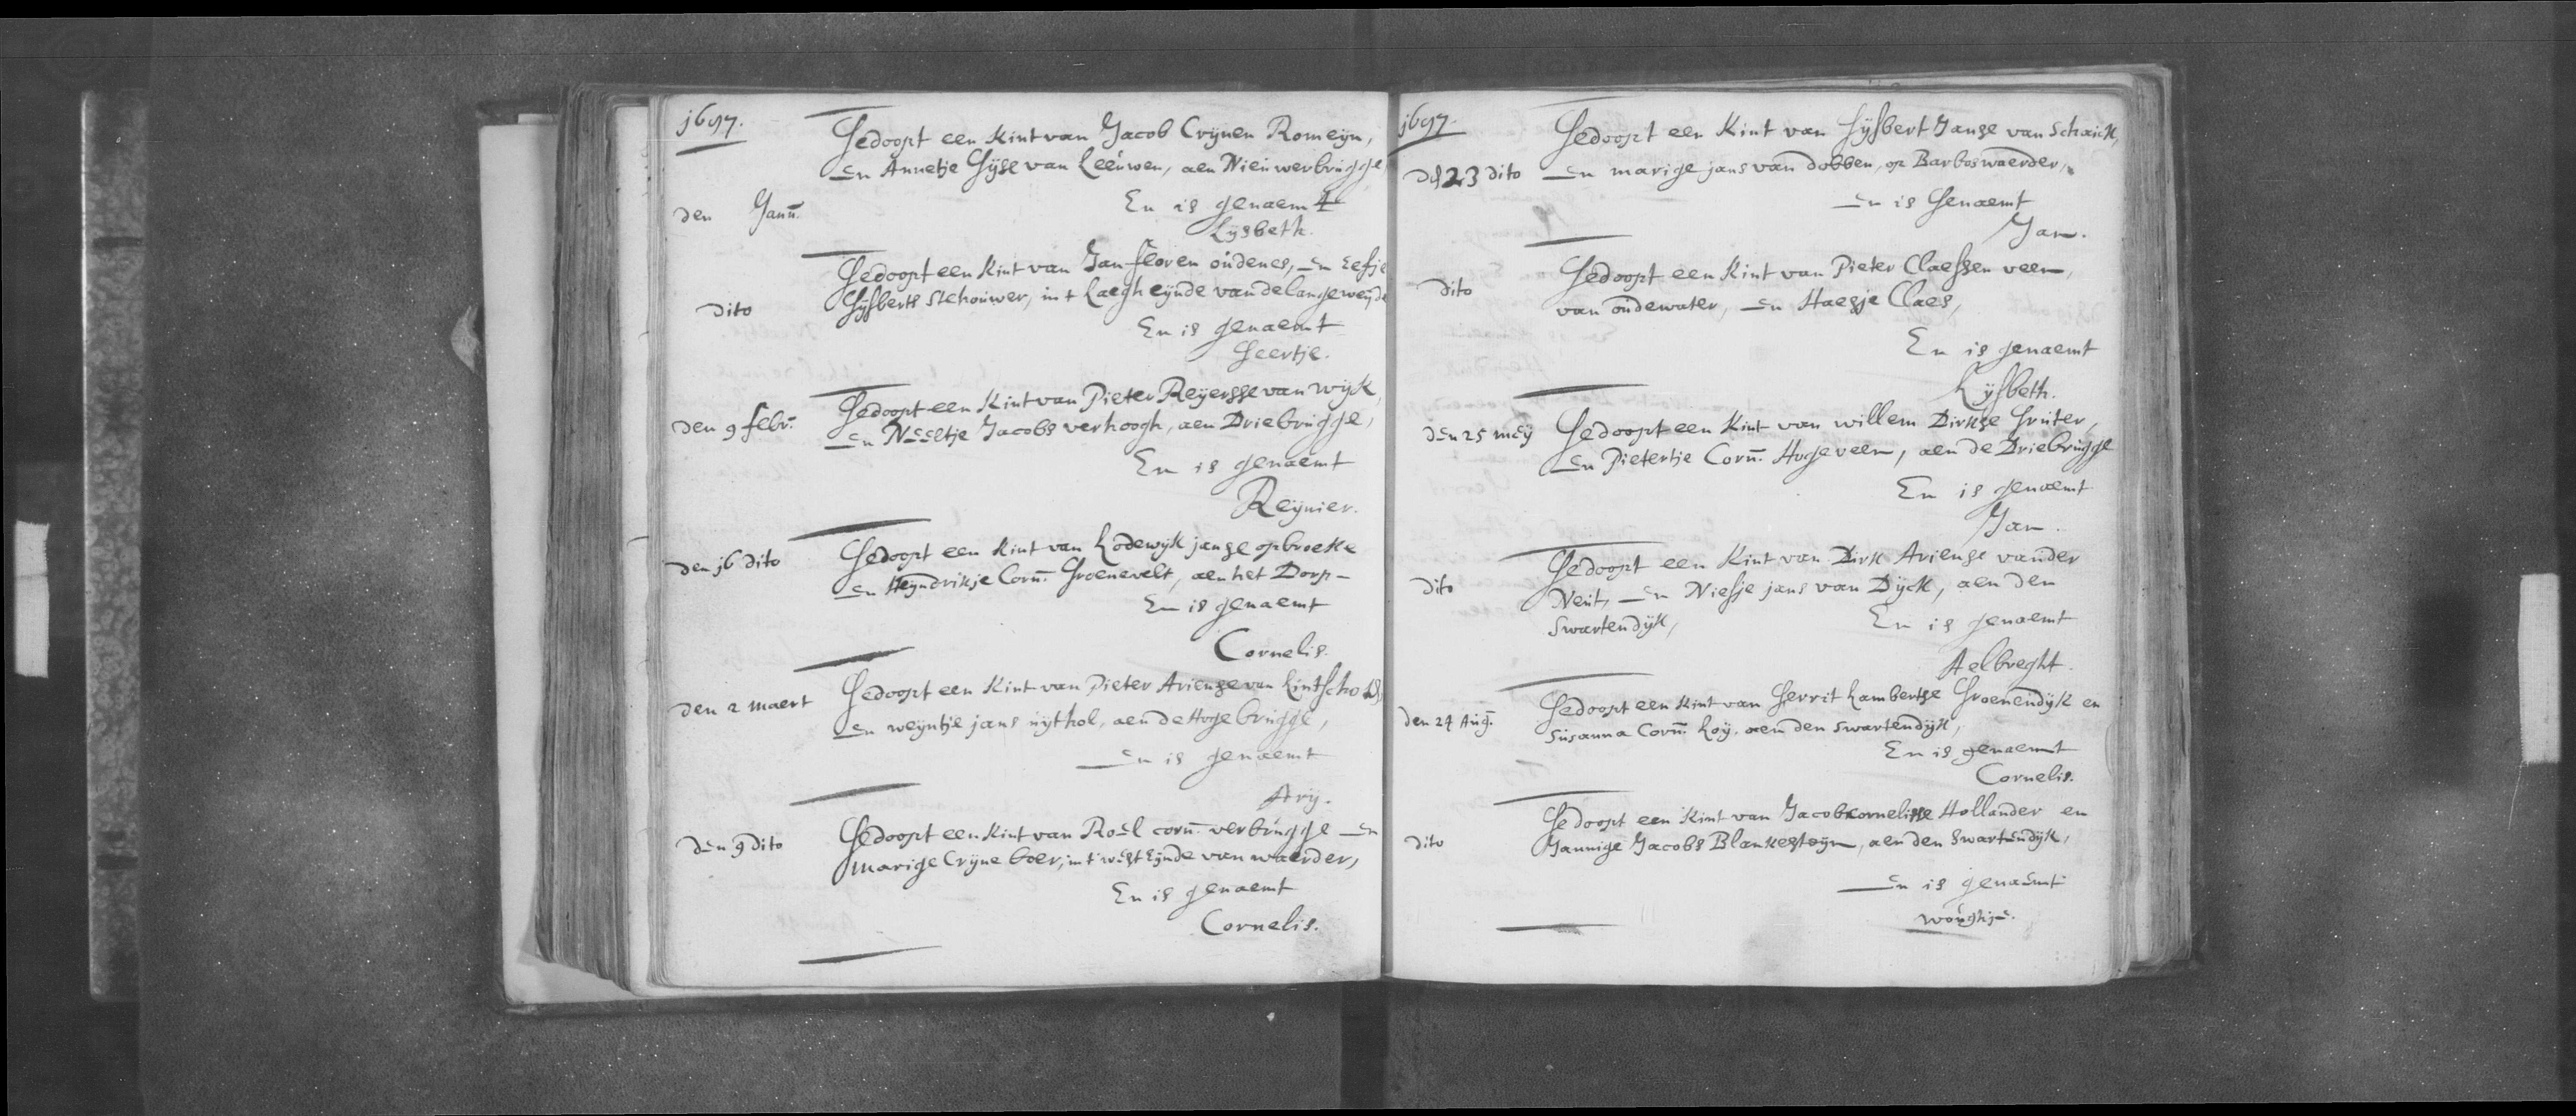 1697.
Gedoopt een kint van Jacob Crynen Romeyn,
en Annetje Gyse van Leeuwen, aen Nieuwerbrugge
den Janu.
En is genaemt
Lysbeth.
Gedoopt een kint van Jan floren oudenes, en Eefje
dito
Gysberts Stehouwer, in t Laegh eynde van de Langeweyde
En is genaemt
Geertje.
Gedoopt een kint van Pieter Reyersse van Wyk
den 9 febr.
en Neeltje Jacobs verhoogh, aen Driebrugge,
En is genaemt
Reynier.
den j6 dito
Gedoopt een kint van Lodewyk janse opbroeke
en Heyndrikje Corn. Groenevelt, aen het Dorp
En is genaemt
Cornelis.
den 2 maert
Gedoopt een kint van Pieter Ariense van Lintscho
en weyntje jans uythol, aen de Hogebrugge,
en is genaemt
Ary.
den 9 dito
Gedoopt een kint van Roel corn. verbrugge en
marige Cryne boer, in t west Eynde van waerder,
En is genaemt
Cornelis.
1697.
Gedoopt een kint van Gysbert Janse van Schaick,
23 dito
en marige jans van dobben, op Barboswaerder,
en is Genaemt
Jan.
dito
Gedoopt een kint van Pieter Claessen veen,
van oudewater, en Haesje Claes,
En is genaemt
Lysbeth.
den 25 mey
Gedoopt een kint van willem Dirkse Gruter,
en Pietertje Corn. Hogeveen, aen de Driebrugge
En is genaemt
Jan.
dito
Gedoopt een kint van Dirk Ariense vander
Neut, en Niesje jans van Dyck, aen den
Swartendyk,
En is genaemt
Aelbreght.
den 24 Aug.
Gedoopt een kint van Gerrit Lambertse Groenendyk en
Susanna Corn. Roy. aen den swartendyk,
En is genaemt
Cornelis.
dito
Gedoopt een kint van Jacob cornelisse Hollander en
Jannige Jacobs Blankesteyn, aen den Swartendyk,
en is genaemt
woughje.